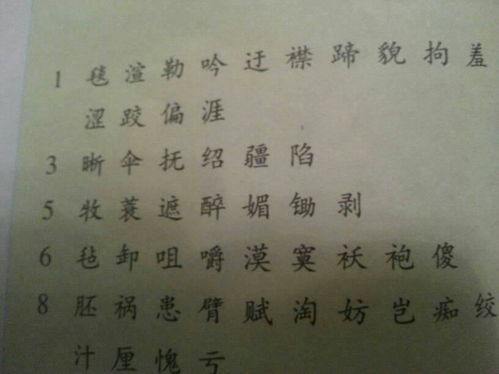 1 毯 渲 勒 吟 迂 襟 蹄 貌 拘 羞
涩 跤 偏 涯
3 晰 伞 抚 绍 疆 陷
5 牧 蓑 遮 醉 媚 锄 剥
6 毡 卸 咀 嚼 漠 寞 袄 袍 傻
8 胚 祸 患 臂 赋 淘 妨 岂 痴 绞
汁 厘 愧 亏